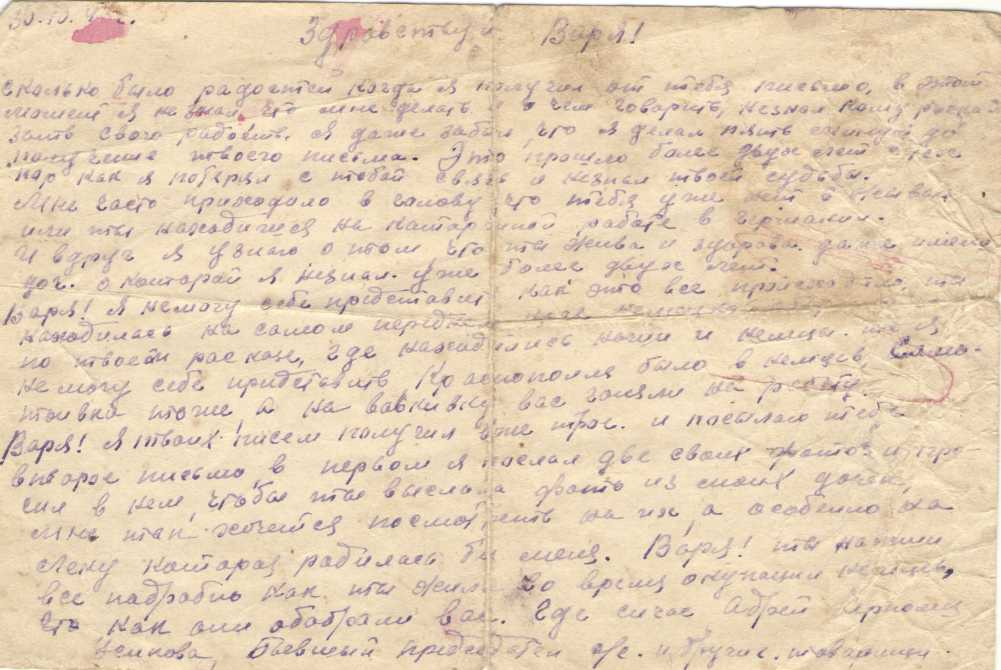 30.10.
Здравствуй Варя!
сколько было радостей когда я получил от тебя письмо, в этот
момент я не знал, что мне делать и о чем говорить, незнал кому расска-
зать свого радость. я даже забыл, что я делал пять минут до
получение твоего письма. Это прошло более двух лет с тех
пор как я потерял с тобой связь и незнал твоей судьбы.
Мне часто приходило в голову что тебя уже нет в живых
или ты находишся на каторжной работе в германии.
И вдруг я узнаю о том что ты жива и здорова. даже имеем
доч. о которой я незнал. уже более двух лет.
Варя! Я немогу себе представит как это все происходило, ты
находилась на самом передке
по твоем расказе, где находились наши и немцы. я
немогу себе придставить Краснополя было в немцев,
тоже а на вас гоняли на работу.
Варя! Я твоих писем получил уже трое. и посылаю тебе
второе письмо, в первом я послал две своих фото и про-
сил в нем, чтобы ты выслала фото из моих дочек,
мне так хочется посмотреть на их, а особенно на
Лену которая радилась без меня. Варя! ты напиши
все падрабно как ты жила во время окупации немцев,
что как они обобрали вас. Где сичас
бывший председател с/с. и других. товарищей.